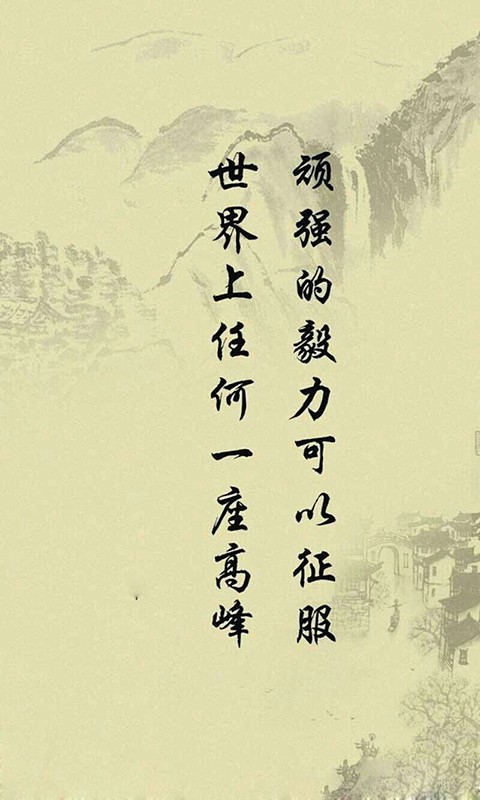 顽强的毅力可以征服
世界上任何一座高峰